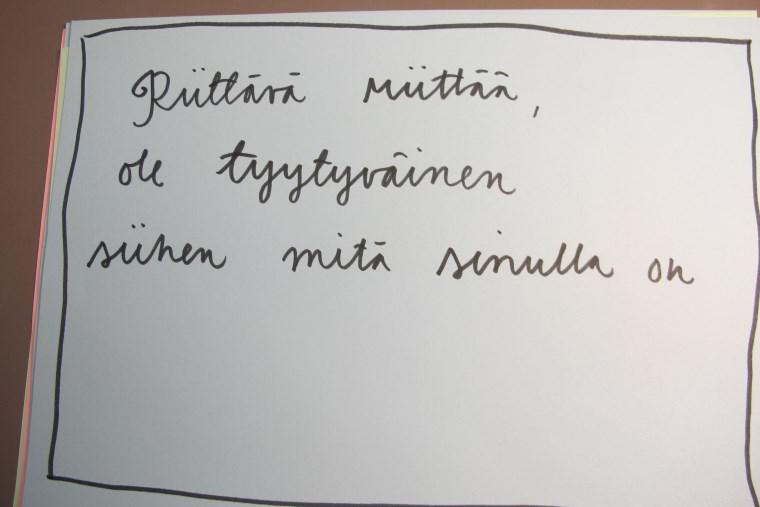 Riittävä riittää,
ole tyytyväinen
siihen mitä sinulla on